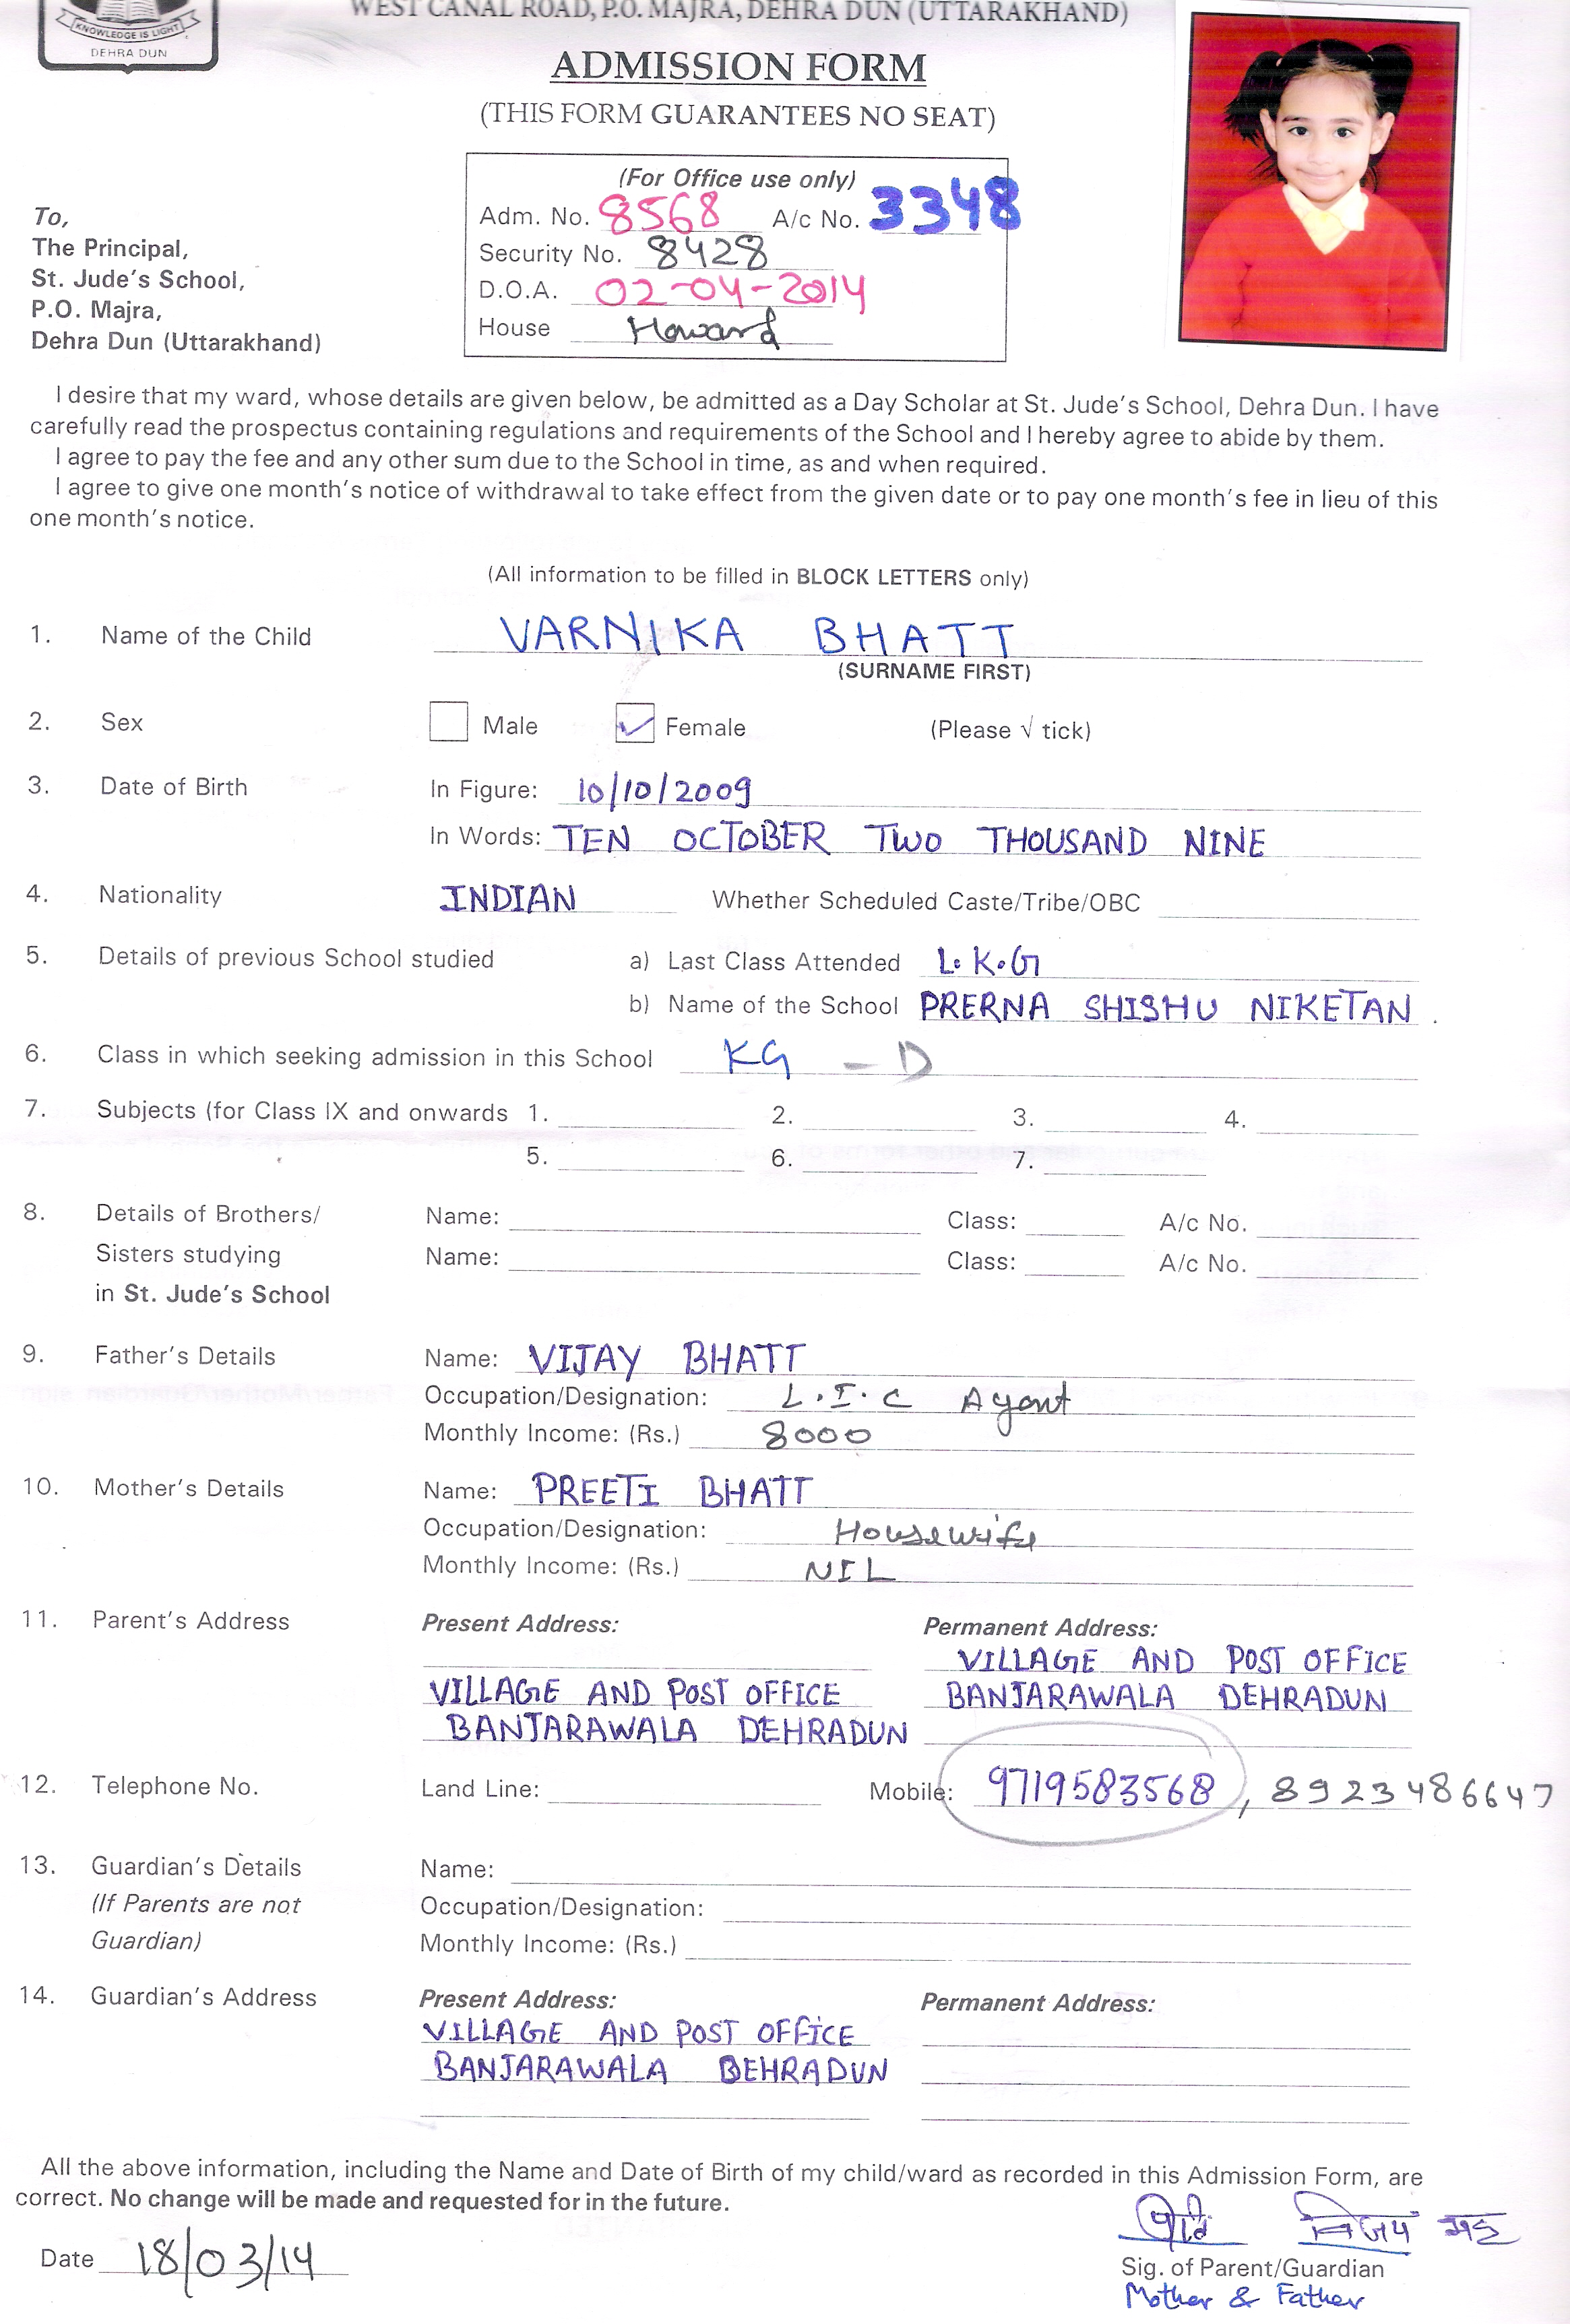 KNOWLEDGE IS LIGHT
DEHRA DUN
WEST CANAL ROAD, P.O. MAJRA, DEHRA DUN (UTTARAKHAND)
ADMISSION FORM
(THIS FORM GUARANTEES NO SEAT)
(For Office use only)
Adm. No. 8568 A/c No. 3348
Security No. 8428
D.O.A. 02-04-2014
House Howard
To,
The Principal,
St. Jude's School,
P.O. Majra,
Dehra Dun (Uttarakhand)
I desire that my ward, whose details are given below, be admitted as a Day Scholar at St. Jude's School, Dehra Dun. I have
carefully read the prospectus containing regulations and requirements of the School and I hereby agree to abide by them.
I agree to pay the fee and any other sum due to the School in time, as and when required.
I agree to give one month's notice of withdrawal to take effect from the given date or to pay one month's fee in lieu of this
one month's notice.
(All information to be filled in BLOCK LETTERS only)
1. Name of the Child VARNIKA BHATT
(SURNAME FIRST)
2. Sex Male ✓ Female (Please √ tick)
3. Date of Birth In Figure: 10/10/2009
In Words: TEN OCTOBER TWO THOUSAND NINE
4. Nationality INDIAN Whether Scheduled Caste/Tribe/OBC
5. Details of previous School studied a) Last Class Attended L.K.G
b) Name of the School PRERNA SHISHU NIKETAN.
6. Class in which seeking admission in this School KG - D
7. Subjects (for Class IX and onwards 1. 2. 3. 4.
5. 6. 7.
8. Details of Brothers/ Name: Class: A/c No.
Sisters studying Name: Class: A/c No.
in St. Jude's School
9. Father's Details Name: VIJAY BHATT
Occupation/Designation: L.I.C Agent
Monthly Income: (Rs.) 8000
10. Mother's Details Name: PREETI BHATT
Occupation/Designation: Housewife
Monthly Income: (Rs.) NIL
11. Parent's Address Present Address: Permanent Address:
VILLAGE AND POST OFFICE VILLAGE AND POST OFFICE
BANJARAWALA DEHRADUN BANJARAWALA DEHRADUN
12. Telephone No. Land Line: Mobile: 9719583568, 8923486647
13. Guardian's Details Name:
(If Parents are not Occupation/Designation:
Guardian) Monthly Income: (Rs.)
14. Guardian's Address Present Address: Permanent Address:
VILLAGE AND POST OFFICE
BANJARAWALA DEHRADUN
All the above information, including the Name and Date of Birth of my child/ward as recorded in this Admission Form, are
correct. No change will be made and requested for in the future.
Date 18/03/14
Sig. of Parent/Guardian
Mother & Father